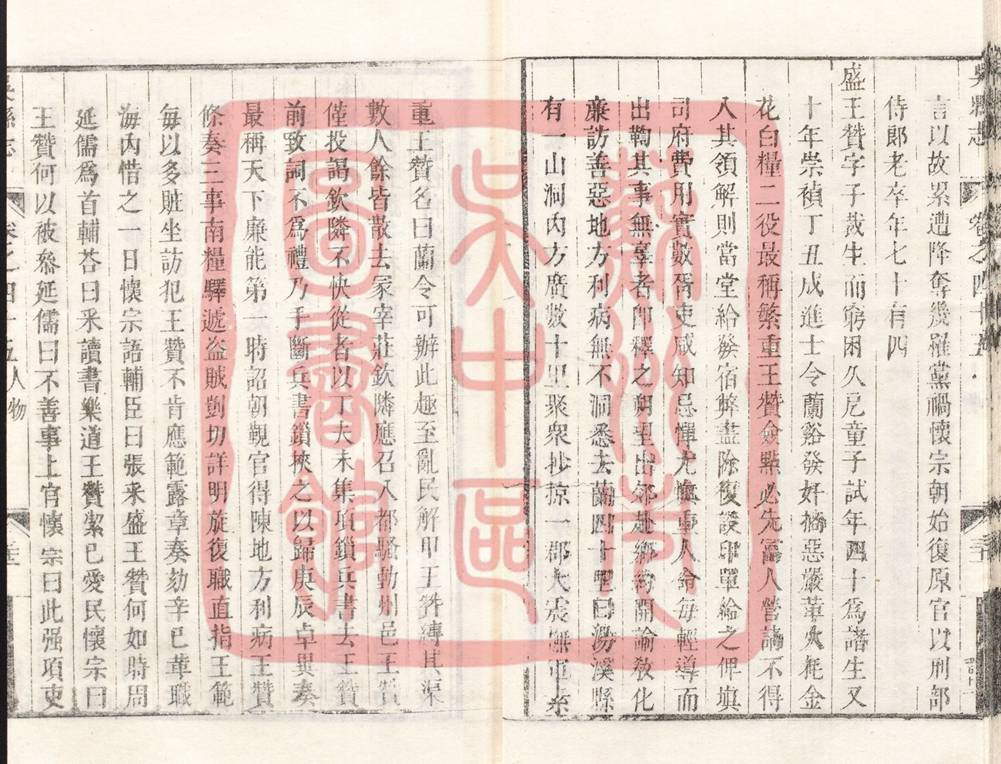 吳縣志 卷之四十五
言以故累遭降奪幾罹黨禍懷宗朝始復原官以刑部
侍郎老卒年七十有四
盛王贊字子裁生而窮困久厄童子試年四十爲諸生又
十年崇禎丁丑成進士令蘭谿發奸摘惡嚴革火耗金
花白糧二役最稱繁重王贊僉點必先富人營請不得
入其領解則當堂給發宿弊盡除復設印單給之俾填
司府費用實數胥吏咸知忌憚尤愼重人命每輕導而
出鞫其事無辜者卽釋之朔望出郊赴鄉約開諭敎化
廉訪善惡地方利病無不洞悉去蘭四十里爲湯溪縣
有一山洞內方廣數十里聚衆抄掠一郡大震撫軍系
重王贊名曰蘭令可辦此趣至亂民解甲王贊縛其渠
數人餘皆散去冢宰莊欽隣應召入都騷動州邑王贊
僅投謁欽隣不快從者以丁夫未集項鎖兵書去王贊
前致詞不爲禮乃手斷兵書鎖挾之以歸庚辰卓異奏
最稱天下廉能第一時詔朝覲官得陳地方利病王贊
條奏三事南糧驛遞盜賊剴切詳明旋復職直指王範
每以多賍坐訪犯王贊不肯應範露章奏劾辛巳革職
海內惜之一日懷宗語輔臣曰張采盛王贊何如時周
延儒爲首輔荅曰采讀書樂道王贊潔已愛民懷宗曰
王贊何以被叅延儒曰不善事上官懷宗曰此强項吏
吳縣志 卷之四十五 人物
蘇州市吳中區圖書館